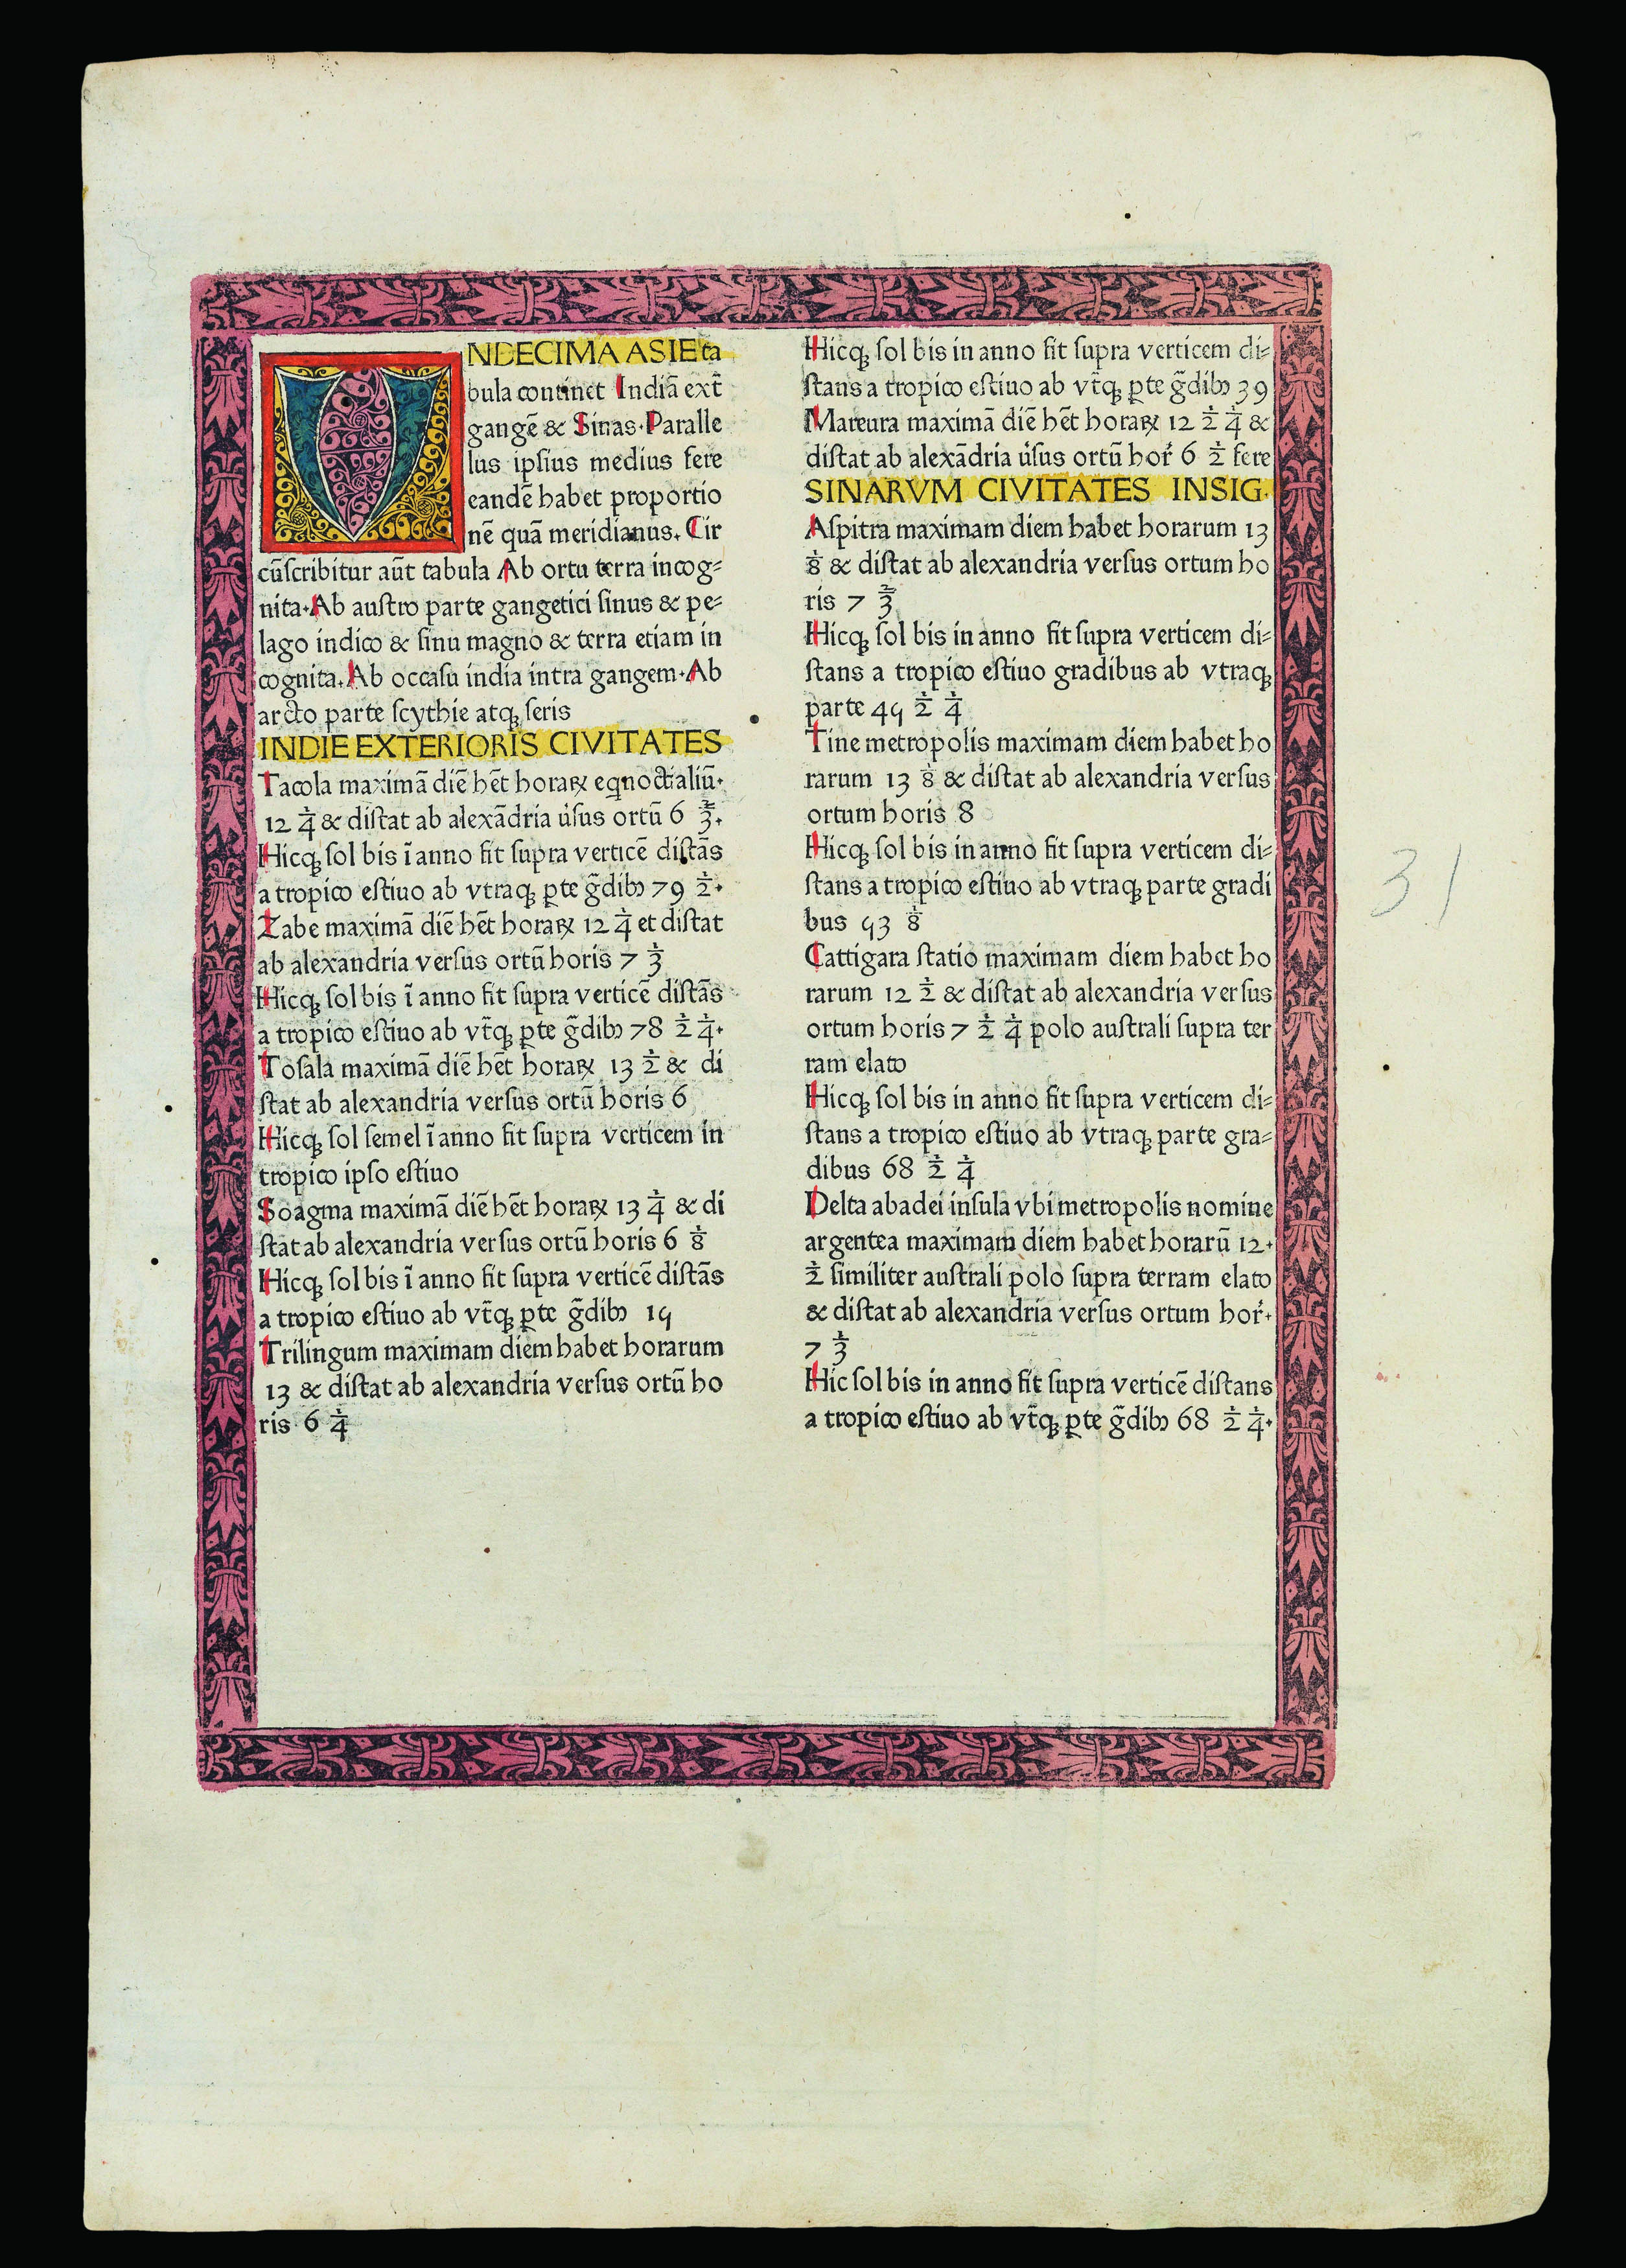 VNDECIMA ASIE ta
bula continet Indiā ext̄
gangē & Sinas. Paralle
lus ipsius medius fere
eandē habet proportio
nē quā meridianus. Cir
cūscribitur aūt tabula Ab ortu terra incog=
nita. Ab austro parte gangetici sinus & pe=
lago indico & sinu magno & terra etiam in
cognita. Ab occasu india intra gangem. Ab
arcto parte scythie atqꝫ seris
INDIE EXTERIORIS CIVITATES
Tacola maximā diē hēt horaꝝ eqnoctialiū.
12 1/4 & distat ab alexādria ůsus ortū 6 2/3.
Hicqꝫ sol bis ī anno fit supra verticē distās
a tropico estiuo ab vtraqꝫ ꝑte ḡdibꝰ 79 1/2.
Zabe maximā diē hēt horaꝝ 12 1/4 et distat
ab alexandria versus ortū horis 7 1/3
Hicqꝫ sol bis ī anno fit supra verticē distās
a tropico estiuo ab vt̄qꝫ ꝑte ḡdibꝰ 78 1/2 1/4.
Tosala maximā diē hēt horaꝝ 13 1/2 & di
stat ab alexandria versus ortū horis 6
Hicqꝫ sol semel ī anno fit supra verticem in
tropico ipso estiuo
Soagma maximā diē hēt horaꝝ 13 1/4 & di
stat ab alexandria versus ortū horis 6 1/8
Hicqꝫ sol bis ī anno fit supra verticē distās
a tropico estiuo ab vt̄qꝫ ꝑte ḡdibꝰ 15
Trilingum maximam diem habet horarum
13 & distat ab alexandria versus ortū ho
ris 6 1/4
Hicqꝫ sol bis in anno fit supra verticem di=
stans a tropico estiuo ab vt̄qꝫ ꝑte ḡdibꝰ 39
Mareura maximā diē hēt horaꝝ 12 1/2 1/4 &
distat ab alexādria ůsus ortū hor̄ 6 1/2 fere
SINARVM CIVITATES INSIG.
Aspitra maximam diem habet horarum 13
1/8 & distat ab alexandria versus ortum ho
ris 7 2/3
Hicqꝫ sol bis in anno fit supra verticem di=
stans a tropico estiuo gradibus ab vtraqꝫ
parte 45 1/2 1/4
Tine metropolis maximam diem habet ho
rarum 13 8 & distat ab alexandria versus
ortum horis 8
Hicqꝫ sol bis in anno fit supra verticem di=
stans a tropico estiuo ab vtraqꝫ parte gradi
bus 53 1/8
Cattigara statio maximam diem habet ho
rarum 12 1/2 & distat ab alexandria versus
ortum horis 7 1/2 1/4 polo australi supra ter
ram elato
Hicqꝫ sol bis in anno fit supra verticem di=
stans a tropico estiuo ab vtraqꝫ parte gra=
dibus 68 1/2 1/4
Delta abadei insula vbi metropolis nomine
argentea maximam diem habet horarū 12.
1/2 similiter australi polo supra terram elato
& distat ab alexandria versus ortum hor̄.
7 1/3
Hic sol bis in anno fit supra verticē distans
a tropico estiuo ab vt̄qꝫ ꝑte ḡdibꝰ 68 1/2 1/4.
31